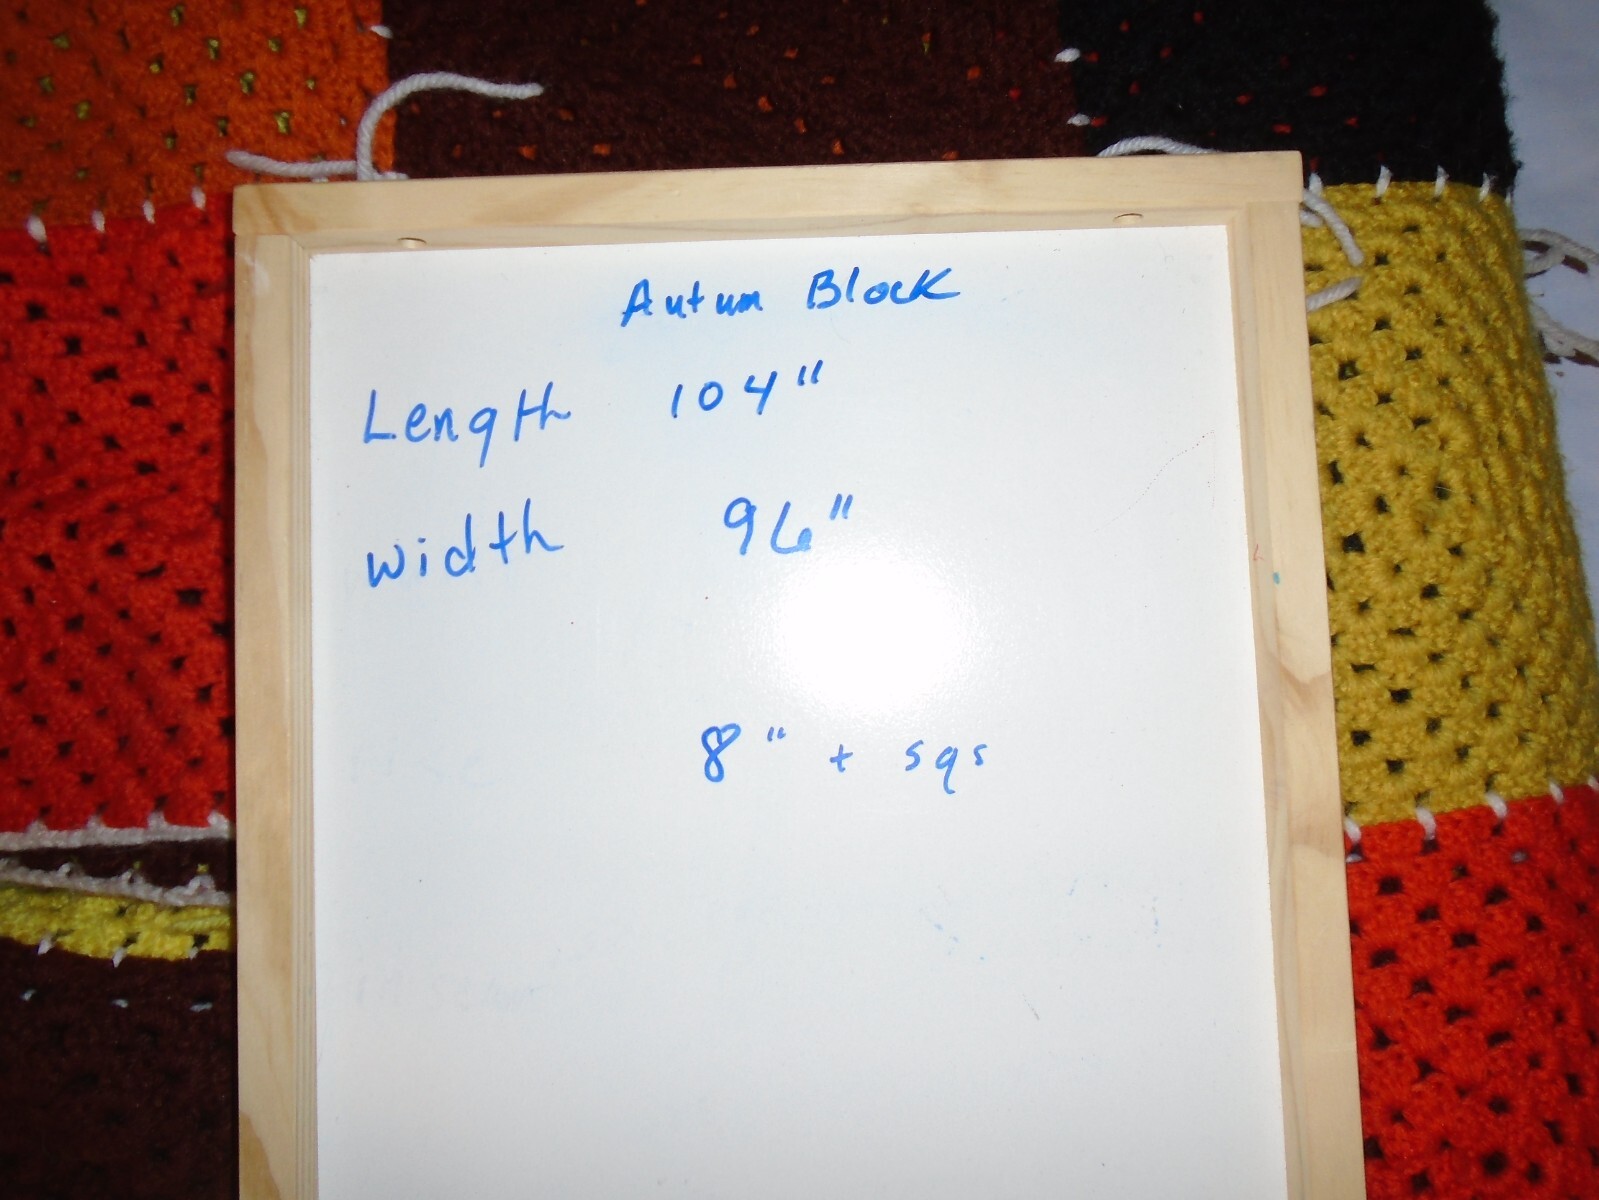 Autum Block
Length 104"
width 96"
8" + sqs